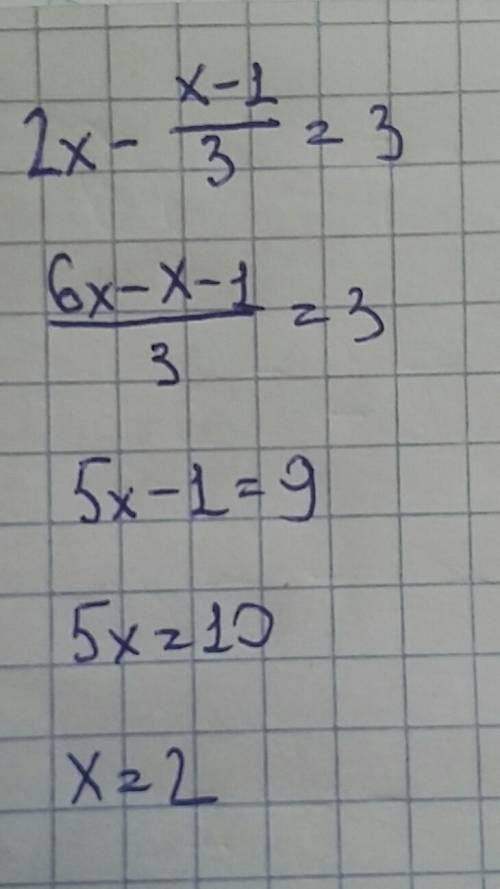 2x - (x-1)/3 = 3
(6x-x-1)/3 = 3
5x-1=9
5x=10
x=2